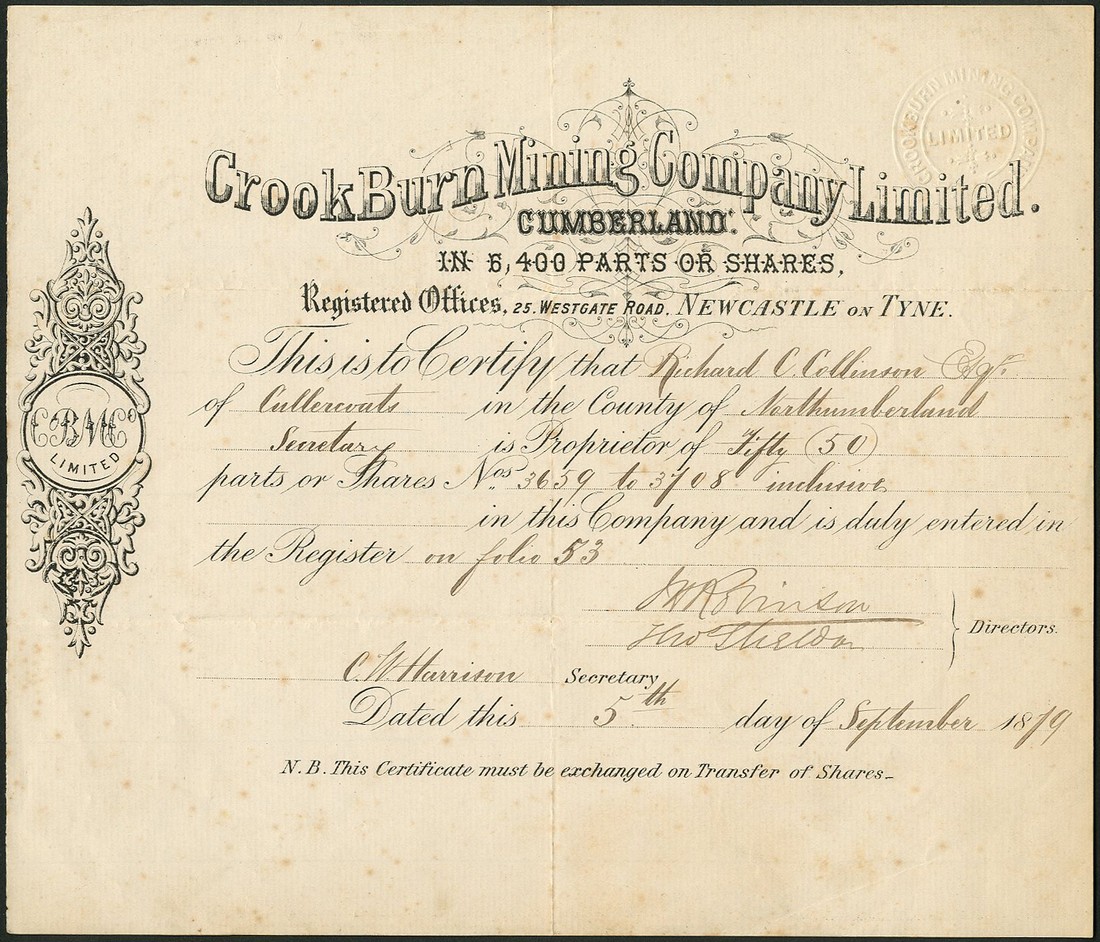 CROOK BURN MINING COMPANY
LIMITED
Crook Burn Mining Company Limited.
CUMBERLAND.
IN 6,400 PARTS OR SHARES,
Registered Offices, 25. WESTGATE ROAD. NEWCASTLE ON TYNE.
This is to Certify that Richard C. Collinson Esqr.
of Cullercoats in the County of Northumberland
Secretary is Proprietor of Fifty (50)
parts or Shares Nos. 3659 to 3708 inclusive
in this Company and is duly entered in
the Register on folio 53
Robinson
Thos Sheldon
Directors.
C. W. Harrison Secretary
Dated this 5th day of September 1879
N.B. This Certificate must be exchanged on Transfer of Shares_
CBMCo
LIMITED